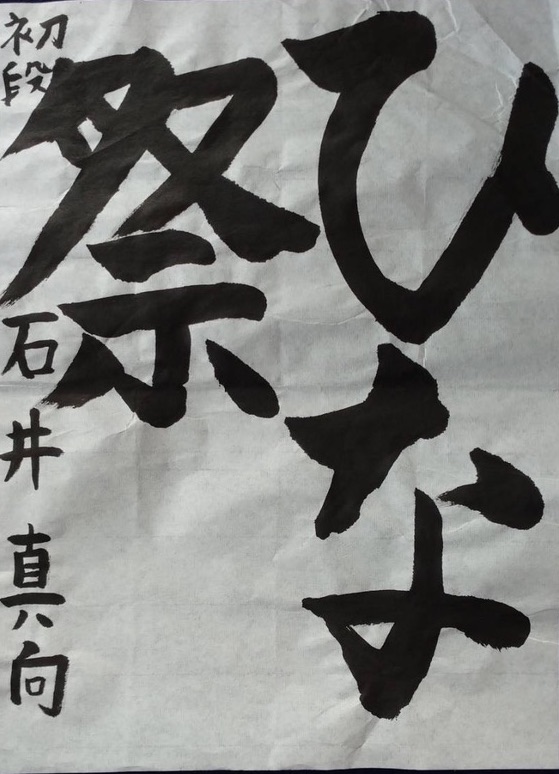 ひな
祭
初段 石井真向